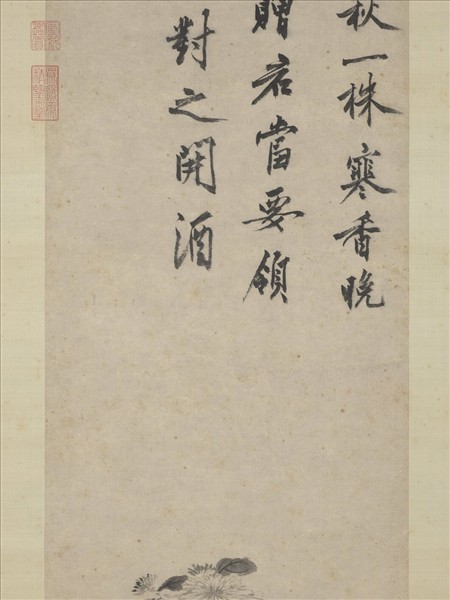 秋一株寒香晚
贈君當要領
對之開酒